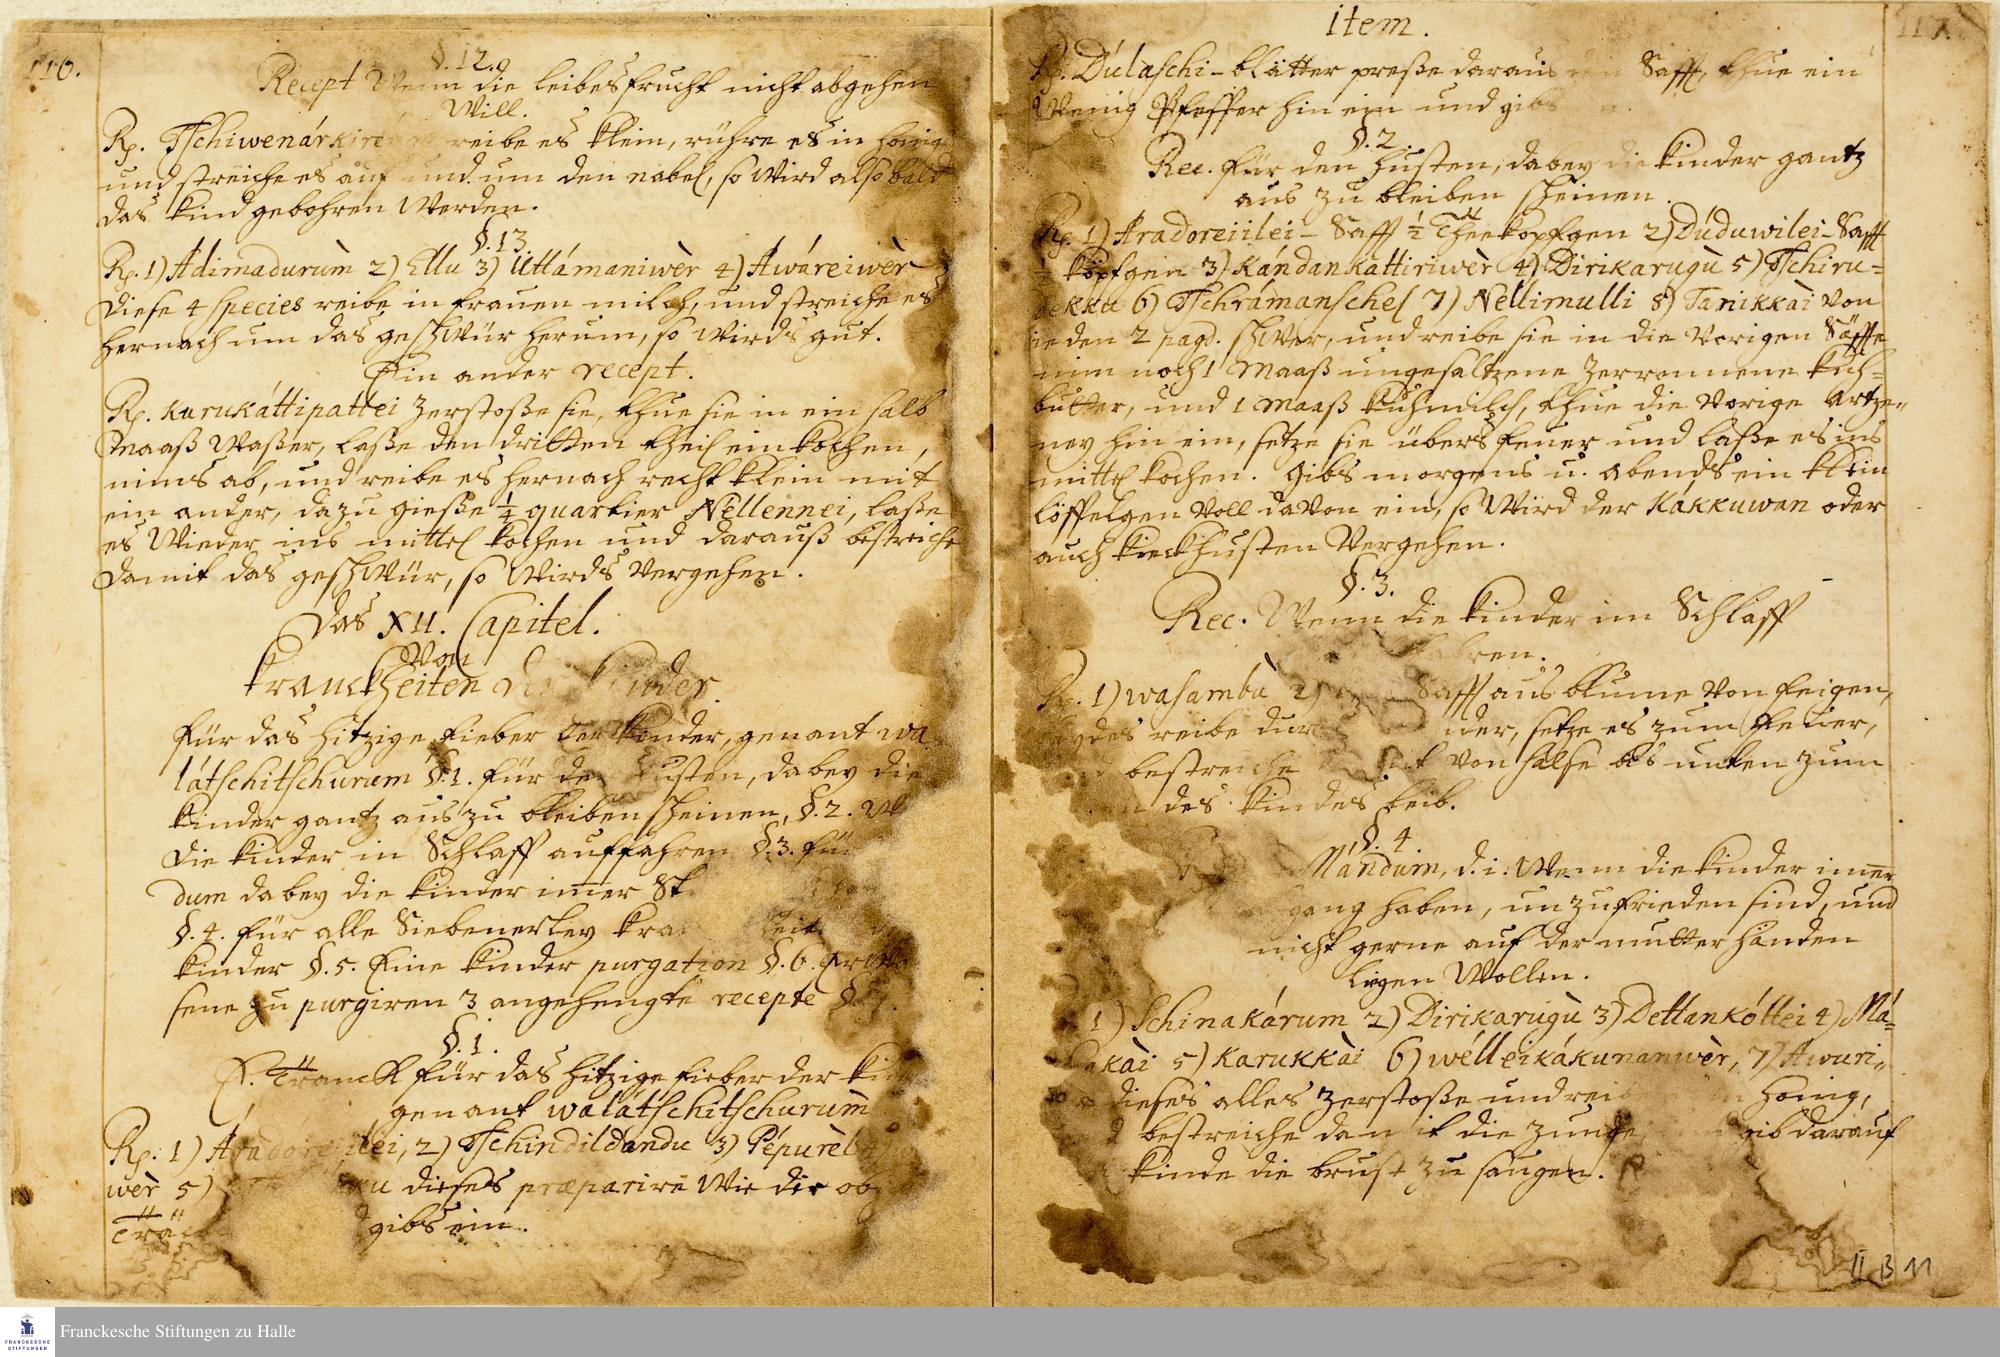 116.
§. 12.
Recept Wenn die leibesfrucht nicht abgehen
Will.
Rp. Tschiwenárkire reibe es klein, rühre es in honig
und streiche es auf und um den nabel, so wird also bald
das kind gebohren werden.
§. 13.
Rp. 1) Adimadurùm 2) Ellu 3) Uttámaniwèr 4) Awáreiwèr
diese 4 species reibe in frauen milch, und streiche es
hernach um das geschwür herum, so wirds gut.
Ein ander recept.
Rp. Karukáttipattei zerstoße sie, thue sie in ein halb
Maaß Waßer, laße den dritten theil ein kochen,
nims ab, und reibe es hernach recht klein mit
ein ander, dazu gieße ¼ quartier Nèllennei, laße
es wieder ins mittel kochen und darauß bestreiche
damit das geschwür, so wirds vergehen.
Das XII. Capitel.
Von
kranckheiten der Kinder.
für das hitzige fieber der kinder, genant wa
látschitschurum §. 1. für den Husten, dabey die
kinder gantz aus zu bleiben scheinen, §. 2. W
die kinder in Schlaff auffahren §. 3. für
dum dabey die kinder im̄er St
§. 4. für alle Siebenerley kra
kinder §. 5. Eine kinder purgation §. 6.
sene zu purgiren 3 angehengte recepte §. 7.
§. 1.
E. Tranck für das hitzige fieber der kin
genant walátschitschurum
Rp. 1) Áradoreiilei, 2) Tschindildandu 3) Pépurèl 4)
wèr 5) dieses præparire wie die ob
Trä gibs ein.
item. 117.
Rp. Dúlaschi-blätter preße daraus den Safft, thue ein
wenig Pfeffer hin ein und gibs
§. 2.
Rec. für den husten, dabey die kinder gantz
aus zu bleiben scheinen.
Rp. 1) Aradoreiilei-Safft ½ Theekopfgen 2) Dúduwilei-Safft
½ köpfgen 3) Kándankattiriwèr 4) Dirikarugù 5) Tschiru=
dekku 6) Tschrámanschel 7) Nellimulli 8) Tanikkài von
ieden 2 pagd. schwer, und reibe sie in die vorigen Säffte
nim noch 1 Maaß ungesaltzene zerronnene kuh=
butter, und 1 Maaß kuhmilch, thue die vorige Artze=
ney hin ein, setze sie übers feuer und laße es ins
mittel kochen. Gibs morgens u. abends ein klein
löffelgen voll davon ein, so wird der Kákkuwan oder
auch kieckhusten vergehen.
§. 3.
Rec. Wenn die kinder im Schlaff
fahren.
Rp. 1) wasambu 2) Safft aus blume von feigen,
beydes reibe dur der, setze es zum feuer,
und bestreiche von halse bis unten zum
des kindes leib.
§. 4
Mándum, d. i: Wenn die kinder im̄er
gang haben, unzufrieden sind, und
nicht gerne auf der mutter händen
liegen wollen.
1) Schinakárum 2) Dirikarugù 3) Dettankóttei 4) Má=
kài 5) Karukkài 6) wélleikákunanwèr, 7) Awuri=
dieses alles zerstoße und reibe Honig,
bestreiche damit die zunge, gib darauf
kinde die brust zu saugen.
II B 11
Franckesche Stiftungen zu Halle
FRANCKESCHE
STIFTUNGEN